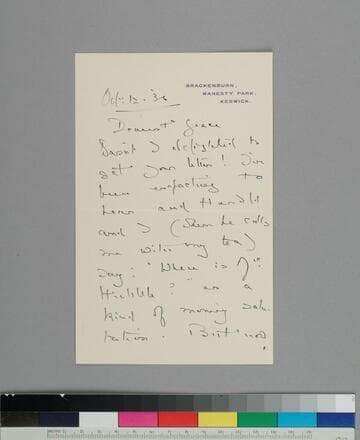 BRACKENBURN,
MANESTY PARK,
KESWICK.
Oct. 12. 36
Dearest
I delighted to
get your letter! I've
been expecting to
hear and Harold
and I (when he calls
me with my tea)
say: "Where is
?" as a
kind of morning salu-
tation. But now